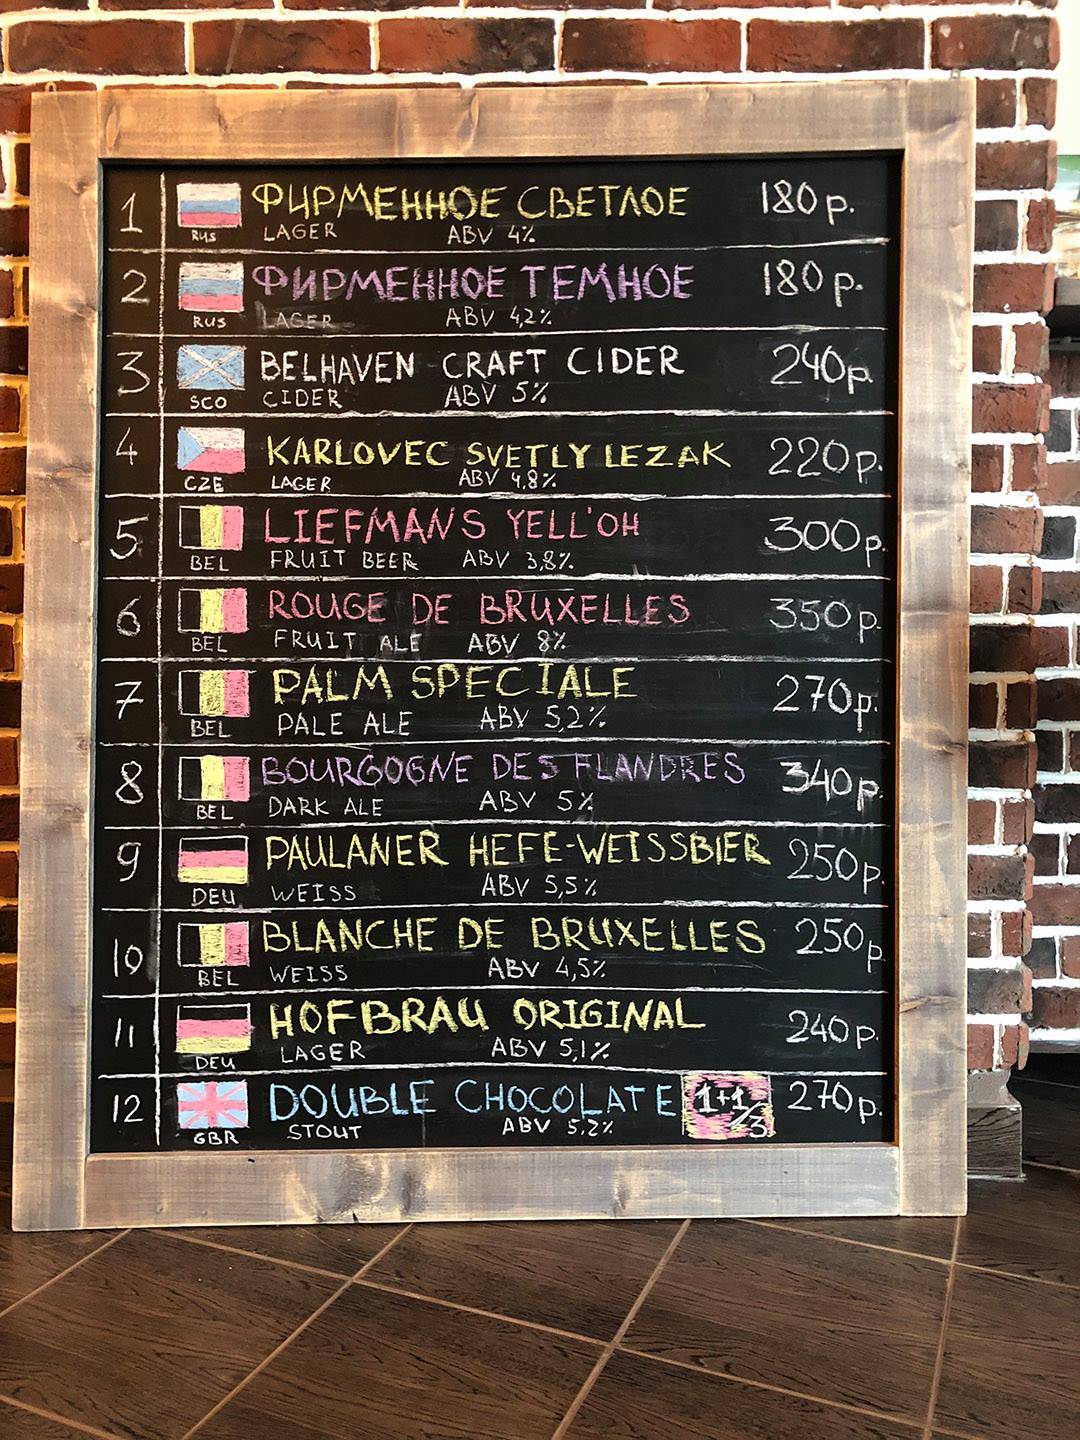 1 ФИРМЕННОЕ СВЕТЛОЕ 180 р.
RUS LAGER ABV 4%
2 ФИРМЕННОЕ ТЕМНОЕ 180 р.
RUS LAGER ABV 4,2%
3 BELHAVEN CRAFT CIDER 240р.
SCO CIDER ABV 5%
4 KARLOVEC SVETLY LEZAK 220р.
CZE LAGER ABV 4,8%
5 LIEFMANS YELL'OH 300р.
BEL FRUIT BEER ABV 3,8%
6 ROUGE DE BRUXELLES 350р.
BEL FRUIT ALE ABV 8%
7 PALM SPECIALE 270р.
BEL PALE ALE ABV 5,2%
8 BOURGOGNE DES FLANDRES 340р.
BEL DARK ALE ABV 5%
9 PAULANER HEFE-WEISSBIER 250р.
DEU WEISS ABV 5,5%
10 BLANCHE DE BRUXELLES 250р
BEL WEISS ABV 4,5%
11 HOFBRAU ORIGINAL 240р.
DEU LAGER ABV 5,1%
12 DOUBLE CHOCOLATE 1+1/3 270р.
GBR STOUT ABV 5,2%